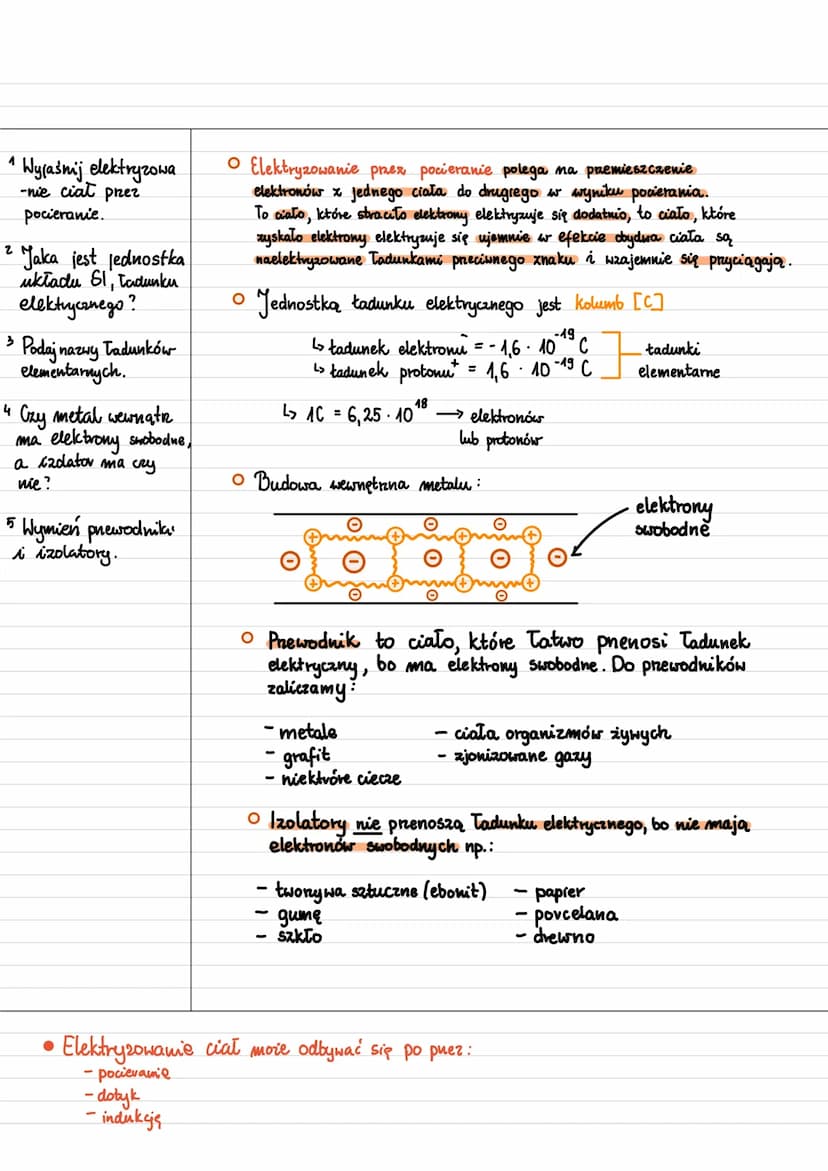 1 Wyjaśnij elektryzowa
-nie ciał przez
pocieranie.
2 Jaka jest jednostka
układu SI, ładunku
elektrycznego?
3 Podaj nazwy ładunków
elementarnych.
4 Czy metal wewnątrz
ma elektrony swobodne,
a izolator ma czy
nie?
5 Wymień przewodniki
i izolatory.
Elektryzowanie przez pocieranie polega na przemieszczenie
elektronów z jednego ciała do drugiego w wyniku pocierania.
To ciało, które straciło elektrony elektryzuje się dodatnio, to ciało, które
zyskało elektrony elektryzuje się ujemnie w efekcie obydwa ciała są
naelektryzowane ładunkami przeciwnego znaku i wzajemnie się przyciągają.
Jednostką ładunku elektrycznego jest kolumb [C]
↳ ładunek elektronu⁻ = - 1,6 · 10⁻¹⁹ C
↳ ładunek protonu⁺ = 1,6 · 10⁻¹⁹ C
ładunki
elementarne
↳ 1C = 6,25 · 10¹⁸ → elektronów
lub protonów
Budowa wewnętrzna metalu:
elektrony
swobodne
Przewodnik to ciało, które łatwo przenosi ładunek
elektryczny, bo ma elektrony swobodne. Do przewodników
zaliczamy:
- metale
- grafit
- niektóre ciecze
- ciała organizmów żywych
- zjonizowane gazy
Izolatory nie przenoszą ładunku elektrycznego, bo nie mają
elektronów swobodnych np.:
- tworzywa sztuczne (ebonit)
- gumę
- szkło
- papier
- porcelana
- drewno
Elektryzowanie ciał może odbywać się po przez:
- pocieranie
- dotyk
- indukcję